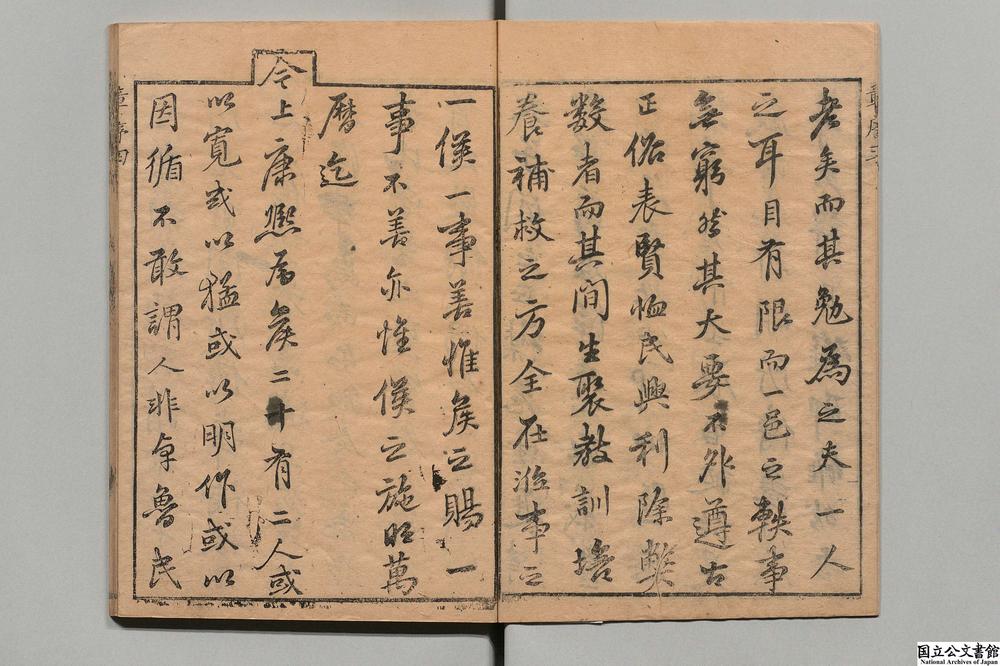 老矣而其勉為之夫一人
之耳目有限而一邑之軼事
無窮然其大要不外遵古
正俗表賢恤民興利除弊
数者而其間生聚教訓培
養補救之方全在涖事之
一侯一事善惟侯之賜一
事不善亦惟侯之施旺萬
曆迄
今上康熙為侯二十有二人或
以寬或以猛或以明作或以
因循不敢謂人非卓魯民
国立公文書館
National Archives of Japan